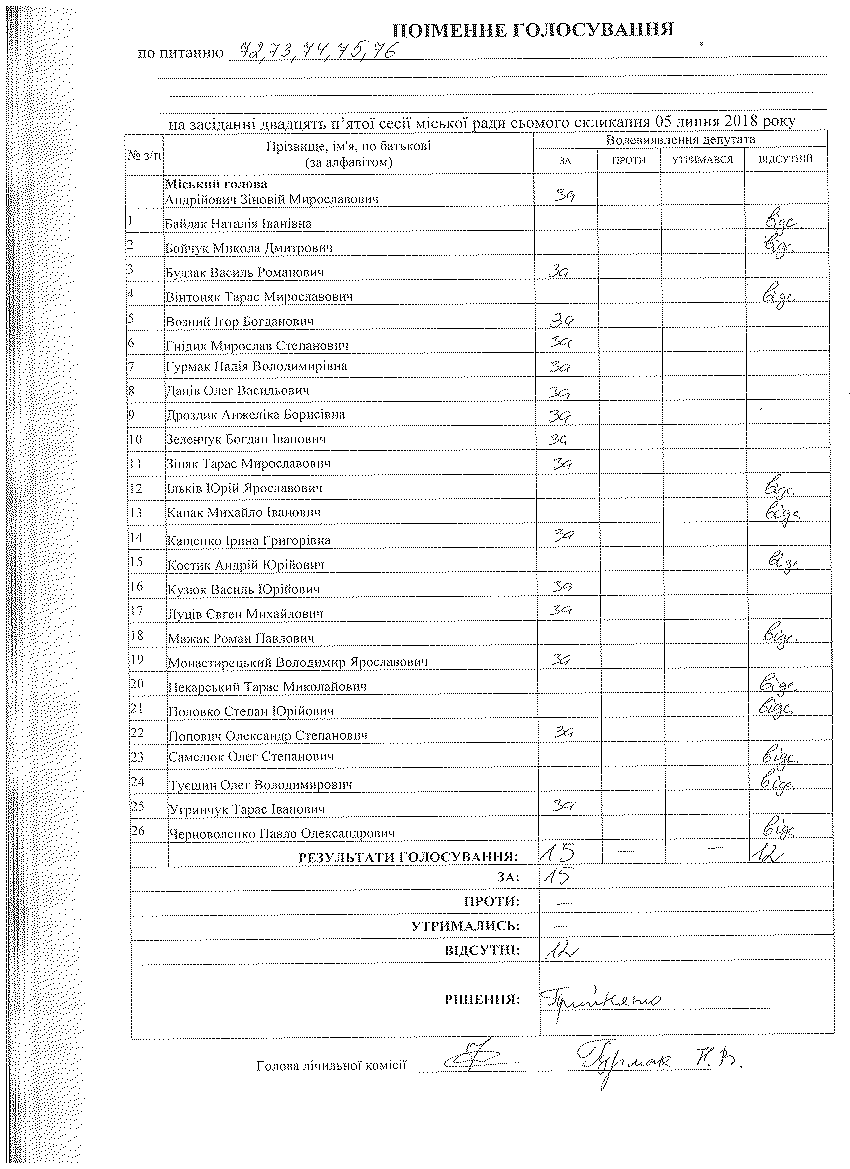 ПОІМЕННЕ ГОЛОСУВАННЯ
по питанню 72,73,74,75,76
на засіданні двадцять п'ятої сесії міської ради сьомого скликання 05 липня 2018 року
№ з/п Прізвище, ім'я, по батькові (за алфавітом) Волевиявлення депутата
ЗА ПРОТИ УТРИМАВСЯ ВІДСУТНІЙ
Міський голова
Андрійович Зіновій Мирославович за
1 Байдак Наталія Іванівна відс.
2 Бойчук Микола Дмитрович відс.
3 Будзак Василь Романович за
4 Вінтоняк Тарас Мирославович відс.
5 Возний Ігор Богданович за
6 Гнідик Мирослав Степанович за
7 Гурмак Надія Володимирівна за
8 Даців Олег Васильович за
9 Дроздик Анжеліка Борисівна за
10 Зеленчук Богдан Іванович за
11 Зіняк Тарас Мирославович за
12 Ільків Юрій Ярославович відс.
13 Капак Михайло Іванович відс
14 Кащенко Ірина Григорівна за
15 Костик Андрій Юрійович відс.
16 Кузюк Василь Юрійович за
17 Луців Євген Михайлович за
18 Мажак Роман Павлович відс.
19 Монастирецький Володимир Ярославович за
20 Пекарський Тарас Миколайович відс.
21 Половко Степан Юрійович відс.
22 Попович Олександр Степанович за
23 Самелюк Олег Степанович відс.
24 Туєшин Олег Володимирович відс.
25 Угринчук Тарас Іванович за
26 Черноволенко Павло Олександрович відс
РЕЗУЛЬТАТИ ГОЛОСУВАННЯ: 15 — — 12
ЗА: 15
ПРОТИ: —
УТРИМАЛИСЬ: —
ВІДСУТНІ: 12
РІШЕННЯ: Прийнято
Голова лічильної комісії Гурмак Н.В.